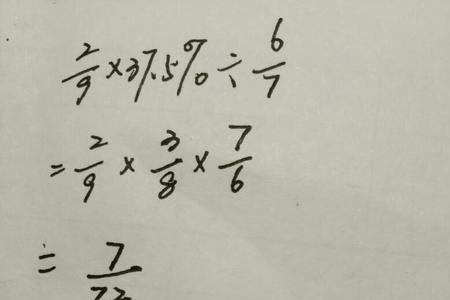 2/9 × 37.5% ÷ 6/7
= 2/9 × 3/8 × 7/6
= 7/72